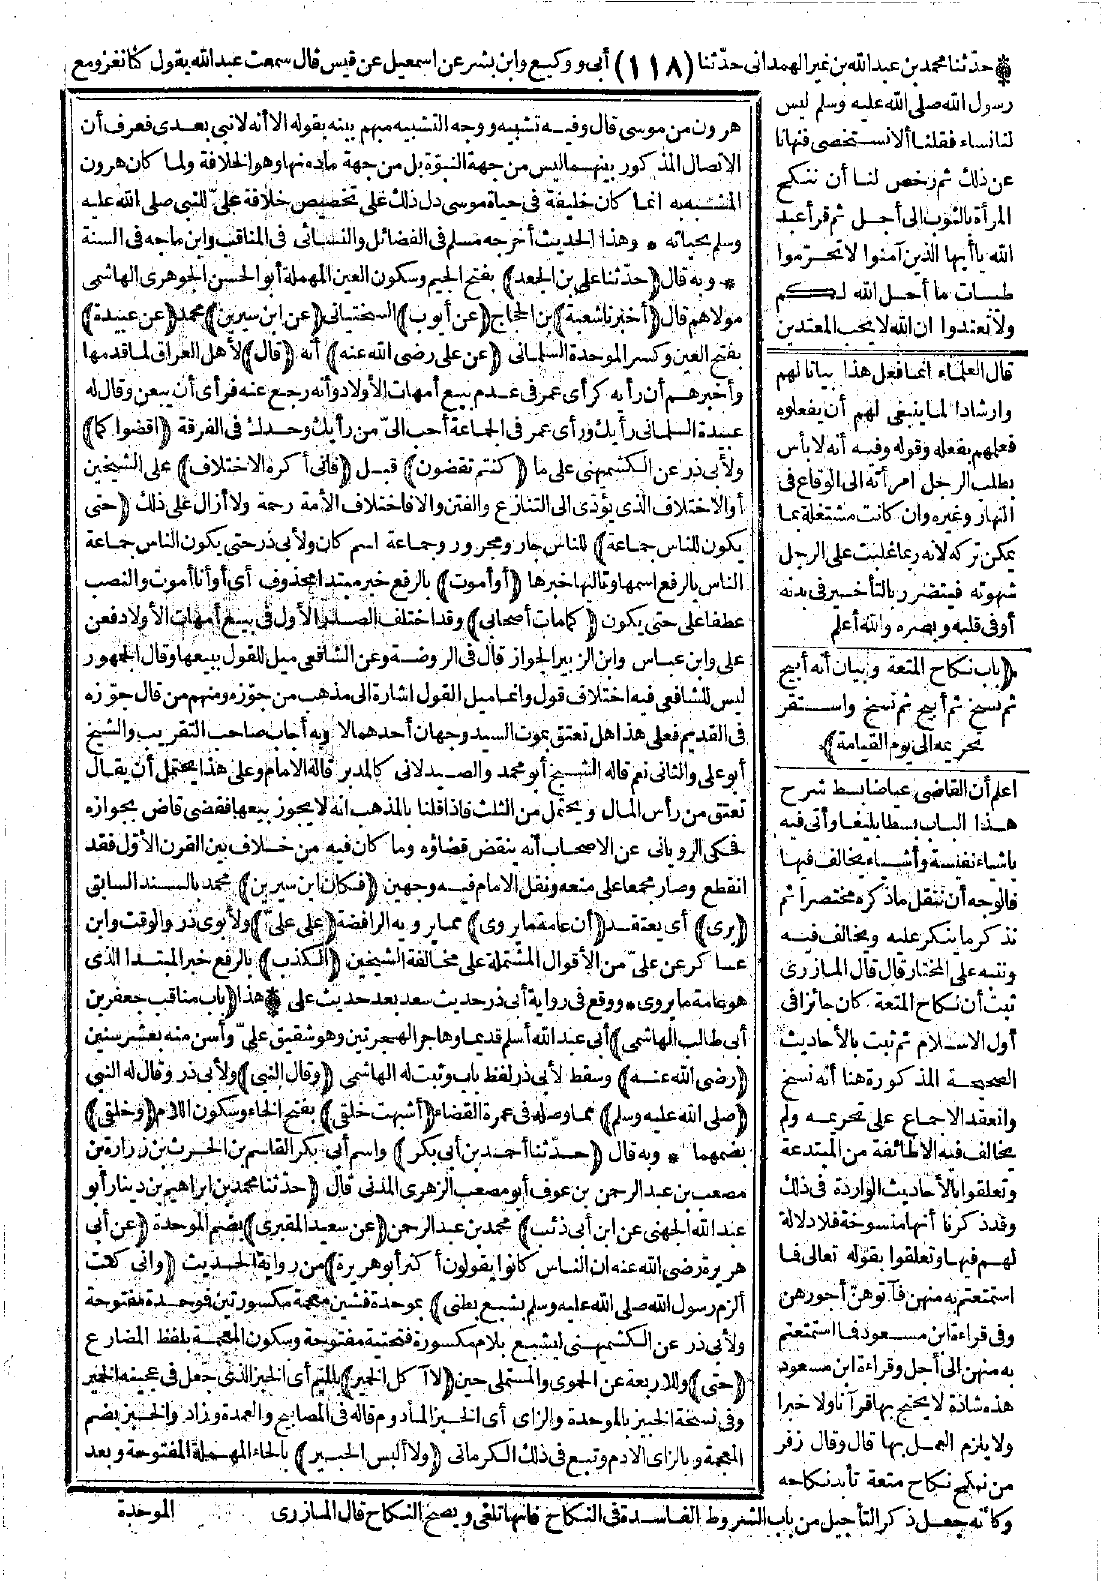 * حدثنا محمد بن عبدالله بن نمير الهمداني حدثنا (١١٨) أبي ووكيع وابن بشر عن اسمعيل عن قيس قال سمعت عبدالله يقول كنا نغزو مع
رسول الله صلى الله عليه وسلم ليس
لنا نساء فقلنا ألا نستخصى فنهانا
عن ذلك ثم رخص لنا أن ننكح
المرأة بالثوب الى أجل ثم قرأ عبد
الله يا أيها الذين آمنوا لا تحرّموا
طيبات ما أحل الله لكم
ولا تعتدوا ان الله لا يحب المعتدين
قال العلماء انما فعل هذا بيانا لهم
وارشادا لما ينبغى لهم أن يفعلوه
فعلمهم بفعله وقوله وفيه أنه لا بأس
بطلب الرجل امرأته الى الوقاع فى
النهار وغيره وان كانت مشتغلة بما
يمكن تركه لانه ربما غلبت على الرجل
شهوته فيتضرر بالتأخير فى بدنه
أو فى قلبه وبصره والله أعلم
(باب نكاح المتعة وبيان أنه أبيح
ثم نسخ ثم أبيح ثم نسخ واستقر
تحريمه الى يوم القيامة)
اعلم أن القاضى عياضا بسط شرح
هذا الباب بسطا بليغا وأتى فيه
بأشياء نفيسة وأشياء يخالف فيها
فالوجه أن ننقل ما ذكره مختصرا ثم
نذكر ما ينكر عليه ويخالف فيه
وننبه على المختار قال قال المازرى
ثبت أن نكاح المتعة كان جائزا فى
أول الاسلام ثم ثبت بالأحاديث
الصحيحة المذكورة هنا أنه نسخ
وانعقد الاجماع على تحريمه ولم
يخالف فيه الا طائفة من المبتدعة
وتعلقوا بالأحاديث الواردة فى ذلك
وقد ذكرنا أنها منسوخة فلا دلالة
لهم فيها وتعلقوا بقوله تعالى فما
استمتعتم به منهن فآتوهنّ أجورهن
وفى قراءة ابن مسعود فما استمتعتم
به منهن الى أجل وقراءة ابن مسعود
هذه شاذة لا يحتج بها قرآنا ولا خبرا
ولا يلزم العمل بها قال وقال زفر
من نكح نكاح متعة تأبد نكاحه
وكأنه جعل ذكر التأجيل من باب الشروط الفاسدة فى النكاح فانها تلغى ويصح النكاح قال المازرى
هرون من موسى قال وفيه تشبيه ووجه التشبيه مبهم بينه بقوله الا أنه لا نبى بعدى فعرف أن
الاتصال المذكور بينهما ليس من جهة النبوّة بل من جهة ما دونها وهو الخلافة ولما كان هرون
المشبه به انما كان خليفة فى حياة موسى دل ذلك على تخصيص خلافة علىّ للنبى صلى الله عليه
وسلم بحياته * وهذا الحديث أخرجه مسلم فى الفضائل والنسائى فى المناقب وابن ماجه فى السنة
* وبه قال (حدثنا على بن الجعد) بفتح الجيم وسكون العين المهملة أبو الحسن الجوهرى الهاشمى
مولاهم قال (أخبرنا شعبة) بن الحجاج (عن أيوب) السختيانى (عن ابن سيرين) محمد (عن عبيدة)
بفتح العين وكسر الموحدة السلمانى (عن على رضى الله عنه) أنه (قال) لأهل العراق لما قدمها
وأخبرهم أن رأيه كرأى عمر فى عدم بيع أمهات الأولاد وأنه رجع عنه فرأى أن يبعن وقال له
عبيدة السلمانى رأيك ورأى عمر فى الجماعة أحب الىّ من رأيك وحدك فى الفرقة (اقضوا كما)
ولأبى ذر عن الكشميهنى على ما (كنتم تقضون) قبل (فانى أكره الاختلاف) على الشيخين
أو الاختلاف الذى يؤدّى الى التنازع والفتن والا فاختلاف الأمة رحمة ولا أزال على ذلك (حتى
يكون للناس جماعة) للناس جار ومجرور وجماعة اسم كان ولأبى ذر حتى يكون الناس جماعة
الناس بالرفع اسمها وتاليها خبرها (أو أموت) بالرفع خبر مبتدا محذوف أى أو أنا أموت والنصب
عطفا على حتى يكون (كما مات أصحابى) وقد اختلف الصدر الأول فى بيع أمهات الأولاد فعن
على وابن عباس وابن الزبير الجواز قال فى الروضة وعن الشافعى ميل للقول ببيعها وقال الجمهور
ليس للشافعى فيه اختلاف قول وانما ميل القول اشارة الى مذهب من جوّزه ومنهم من قال جوّزه
فى القديم فعلى هذا هل تعتق بموت السيد وجهان أحدهما لا وبه أجاب صاحب التقريب والشيخ
أبو على والثانى نعم قاله الشيخ أبو محمد والصيدلانى كالمدبر قاله الامام وعلى هذا يحتمل أن يقال
تعتق من رأس المال ويحتمل من الثلث فاذا قلنا بالمذهب انه لا يجوز بيعها فقضى قاض بجوازه
فحكى الرويانى عن الاصحاب أنه ينقض قضاؤه وما كان فيه من خلاف بين القرن الأوّل فقد
انقطع وصار مجمعا على منعه ونقل الامام فيه وجهين (فكان ابن سيرين) محمد بالسند السابق
(يرى) أى يعتقد (أن عامة ما يروى) مما يرويه الرافضة (على علىّ) ولأبوى ذر والوقت وابن
عساكر عن علىّ من الأقوال المشتملة على مخالفة الشيخين (الكذب) بالرفع خبر المبتدا الذى
هو عامة ما يروى * ووقع فى رواية أبى ذر حديث سعد بعد حديث على * هذا (باب مناقب جعفر بن
أبى طالب الهاشمى) أبى عبد الله أسلم قديما وهاجر الهجرتين وهو شقيق علىّ وأسن منه بعشر سنين
(رضى الله عنه) وسقط لأبى ذر لفظ باب وثبت له الهاشمى (وقال النبى) ولأبى ذر وقال له النبى
(صلى الله عليه وسلم) مما وصله فى عمرة القضاء (أشبهت خلقى) بفتح الخاء وسكون اللام (وخلقى)
بضمهما * وبه قال (حدثنا أحمد بن أبى بكر) واسم أبى بكر القاسم بن الحرث بن زرارة بن
مصعب بن عبد الرحمن بن عوف أبو مصعب الزهرى المدنى قال (حدثنا محمد بن ابراهيم بن دينار أبو
عبد الله الجهنى عن ابن أبى ذئب) محمد بن عبد الرحمن (عن سعيد المقبرى) بضم الموحدة (عن أبى
هريرة رضى الله عنه ان الناس كانوا يقولون أكثر أبو هريرة) من رواية الحديث (وانى كنت
ألزم رسول الله صلى الله عليه وسلم بشبع بطنى) بموحدة فشين معجمة مكسورتين فوحدة مفتوحة
ولأبى ذر عن الكشميهنى ليشبع بلام مكسورة فتحتية مفتوحة وسكون المعجمة بلفظ المضارع
(حتى) وللاربعة عن الحموى والمستملى حين (لا آكل الخمير) بالميم أى الخبز الذى جعل فى عجينه الخمير
وفى نسخة الخبيز بالموحدة والزاى أى الخبز المأدوم قاله فى المصابيح والعمدة وزاد والخبز بضم
المعجمة وبالزاى الادم وتبع فى ذلك الكرمانى (ولا ألبس الحبير) بالحاء المهملة المفتوحة وبعد
الموحدة